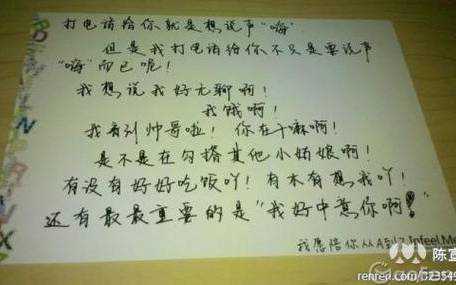 打电话给你就是想说声“嗨”
但是我打电话给你不只是要说声
“嗨”而已呢！
我想说我好无聊啊！
我饿啊！
我看到帅哥啦！你在干嘛啊！
是不是在勾搭其他小姑娘啊！
有没有好好吃饭吖！有木有想我吖！
还有最最重要的是“我好中意你啊！”
我愿陪你从A到Z Infeel Me
陈宣
renren.com/323549